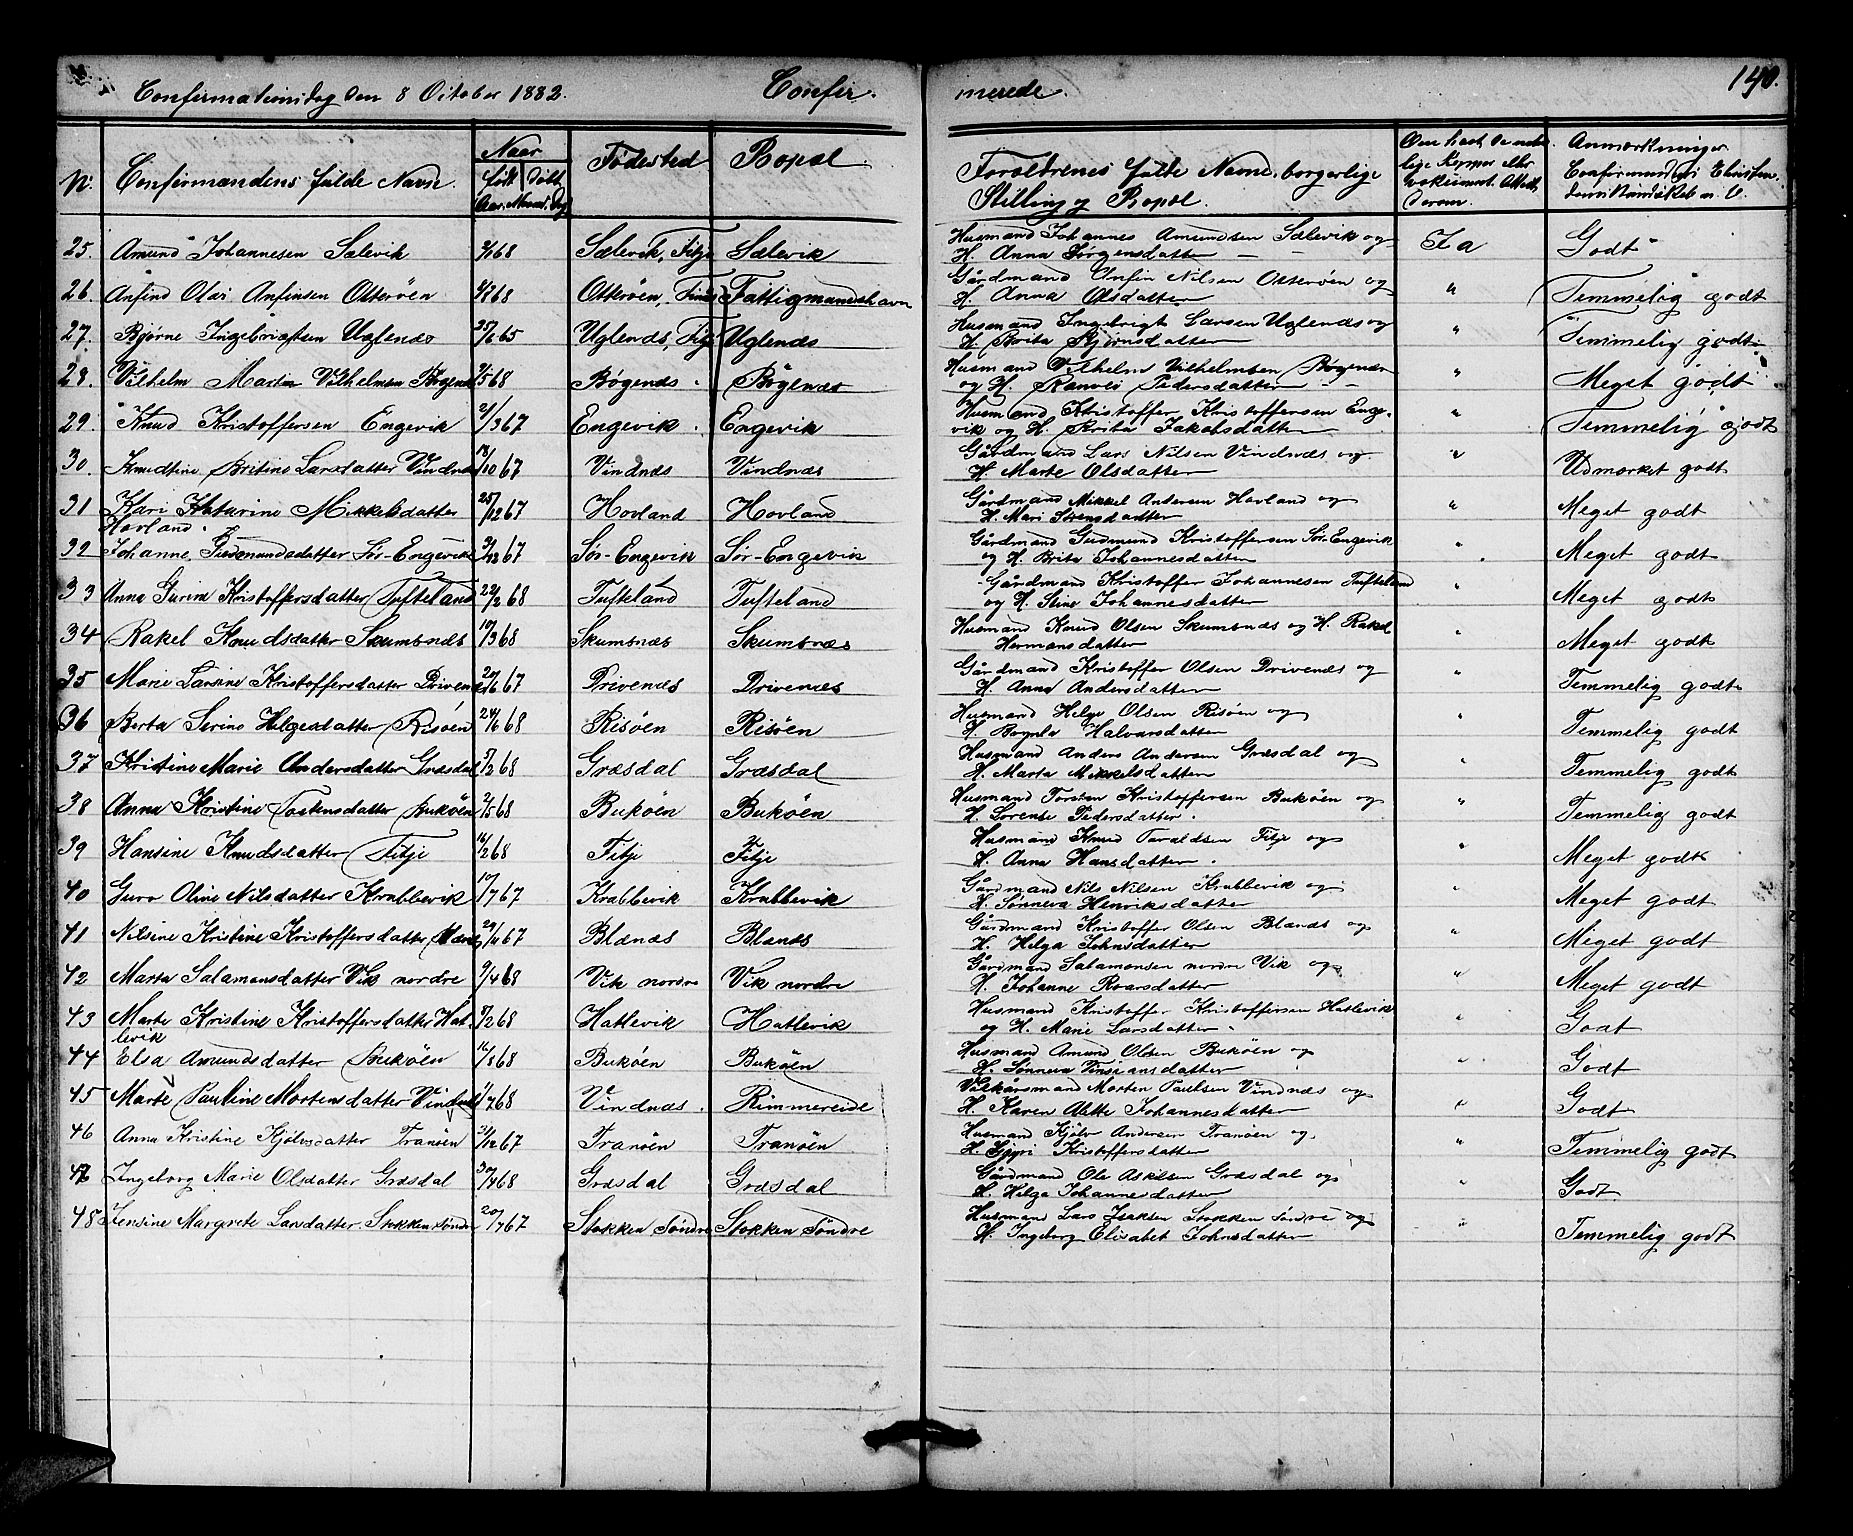 Confirmationsdag den 8 October 1882. Confir- merede. 190.
N. Confirmandens fulde Navn. Naar født Døbt Aar. Maaned. Dag Fødested Bopæl Forældrenes fulde Navne, borgerlige Stilling og Bopæl. Om havt de naturlige Kopper eller vaksineret. Attest derom. Anmærkninger Confirmandens Christendomskundskab m. V.
25. Amund Johannesen Sælevik 68 Sælevik, Fitje Sælevik Husmand Johannes Amundsen Sælevik og H. Anna Jørgensdatter Ja Godt
26. Anfind Olai Anfinsen Otterøen 68 Otterøen, Finås Fattigmandshavn Gårdmand Anfin Nilsen Otterøen og H. Anna Olsdatter " Temmelig godt
27. Bjørne Ingebrigtsen Uglenæs 25/6 65 Uglenæs, Fitje Uglenæs Husmand Ingebrigt Larsen Uglenæs og H. Brita Bjørnsdatter " Temmelig godt
28. Vilhelm Martin Vilhelmsen Bøgenæs 68 Bøgenæs Bøgenæs Husmand Vilhelm Vilhelmsen Bøgenæs og H. Ranvei Pedersdatter " Meget godt
29. Knud Kristoffersen Engevik 21/3 67 Engevik Engevik Husmand Kristoffer Kristoffersen Engevik og H. Brita Jakobsdatter " Temmelig godt
30. Knudtine Britine Larsdatter Vindnæs 18/10 67 Vindnæs Vindnæs Gårdmand Lars Nilsen Vindnæs og H. Marte Olsdatter " Udmærket godt
31 Kari Katarine Mikkelsdatter Hovland 25/12 67 Hovland Hovland Gårdmand Mikkel Andersen Hovland og H. Mari Sørensdatter " Meget godt
32 Johanne Gudmundsdatter Sør-Engevik 31/12 67 Sør-Engevik Sør-Engevik Gårdmand Gudmund Kristoffersen Sør-Engevik og H. Brita Johannesdatter " Meget godt
33 Anna Gurine Kristoffersdatter Tufteland 22/2 68 Tufteland Tufteland Gårdmand Kristoffer Johannesen Tufteland og H. Stine Johannesdatter " Meget godt
34 Rakel Knudsdatter Skumsnæs 10/3 68 Skumsnæs Skumsnæs Husmand Knud Olsen Skumsnæs og H. Rakel Hermansdatter " Meget godt
35 Marie Larsine Kristoffersdatter Drivenæs 20/6 67 Drivenæs Drivenæs Gårdmand Kristoffer Olsen Drivenæs og H. Anna Andersdatter " Temmelig godt
36 Berta Serine Helgesdatter Risøen 24/6 68 Risøen Risøen Husmand Helge Olsen Risøen og H. Halvarsdatter " Temmelig godt
37 Kristine Marie Andersdatter Græsdal 5/2 68 Græsdal Græsdal Husmand Anders Andersen Græsdal og H. Marta Mikkelsdatter " Temmelig godt
38 Anna Kristine Tostensdatter Bukøen 2/5 68 Bukøen Bukøen Husmand Torsten Kristoffersen Bukøen og H. Lorense Pedersdatter " Temmelig godt
39 Hansine Knudsdatter Fitje 14/2 68 Fitje Fitje Husmand Knud Taraldsen Fitje og H. Anna Hansdatter " Meget godt
40 Guro Oline Nilsdatter Krabbevik 10/7 67 Krabbevik Krabbevik Gårdmand Nils Nilsen Krabbevik og H. Sønneva Henriksdatter " Meget godt
41 Nilsine Kristine Kristoffersdatter 67 Blænæs Blænæs Gårdmand Kristoffer Olsen Blænæs og H. Helga Johnsdatter " Meget godt
42 Marta Salamonsdatter Vik nordre 9/4 68 Vik nordre Vik nordre Gårdmand Salamonsen nordre Vik og H. Johanne Roarsdatter " Meget godt
43 Marte Kristine Kristoffersdatter Hatlevik 5/2 68 Hatlevik Hatlevik Husmand Kristoffer Kristoffersen Hatlevik og H. Marie Larsdatter " Godt
44 Elsa Amundsdatter Bukøen 16/8 68 Bukøen Bukøen Husmand Amund Olsen Bukøen og H. Sønneva " Godt
45 Marte Pauline Mortensdatter Vindnæs 68 Vindnæs. Rimmereide Vilkårsmand Morten Paulsen Vindnæs og H. Karen Alette Johannesdatter " Godt
46 Anna Kristine Kjølvsdatter Tranøen 31/12 67 Tranøen Tranøen Husmand Kjølv Andersen Tranøen og H. Kristoffersdatter " Temmelig godt
47 Ingeborg Marie Olsdatter Græsdal 30/4 68 Græsdal Græsdal Gårdmand Ole Askilsen Græsdal og H. Helga Johannesdatter " Godt
48 Jensine Margrete Larsdatter Stokken Søndre 20/7 67 Stokken Søndre Stokken Søndre Husmand Lars Isaksen Stokken Søndre og H. Ingeborg Elisabet Johnsdatter " Temmelig godt